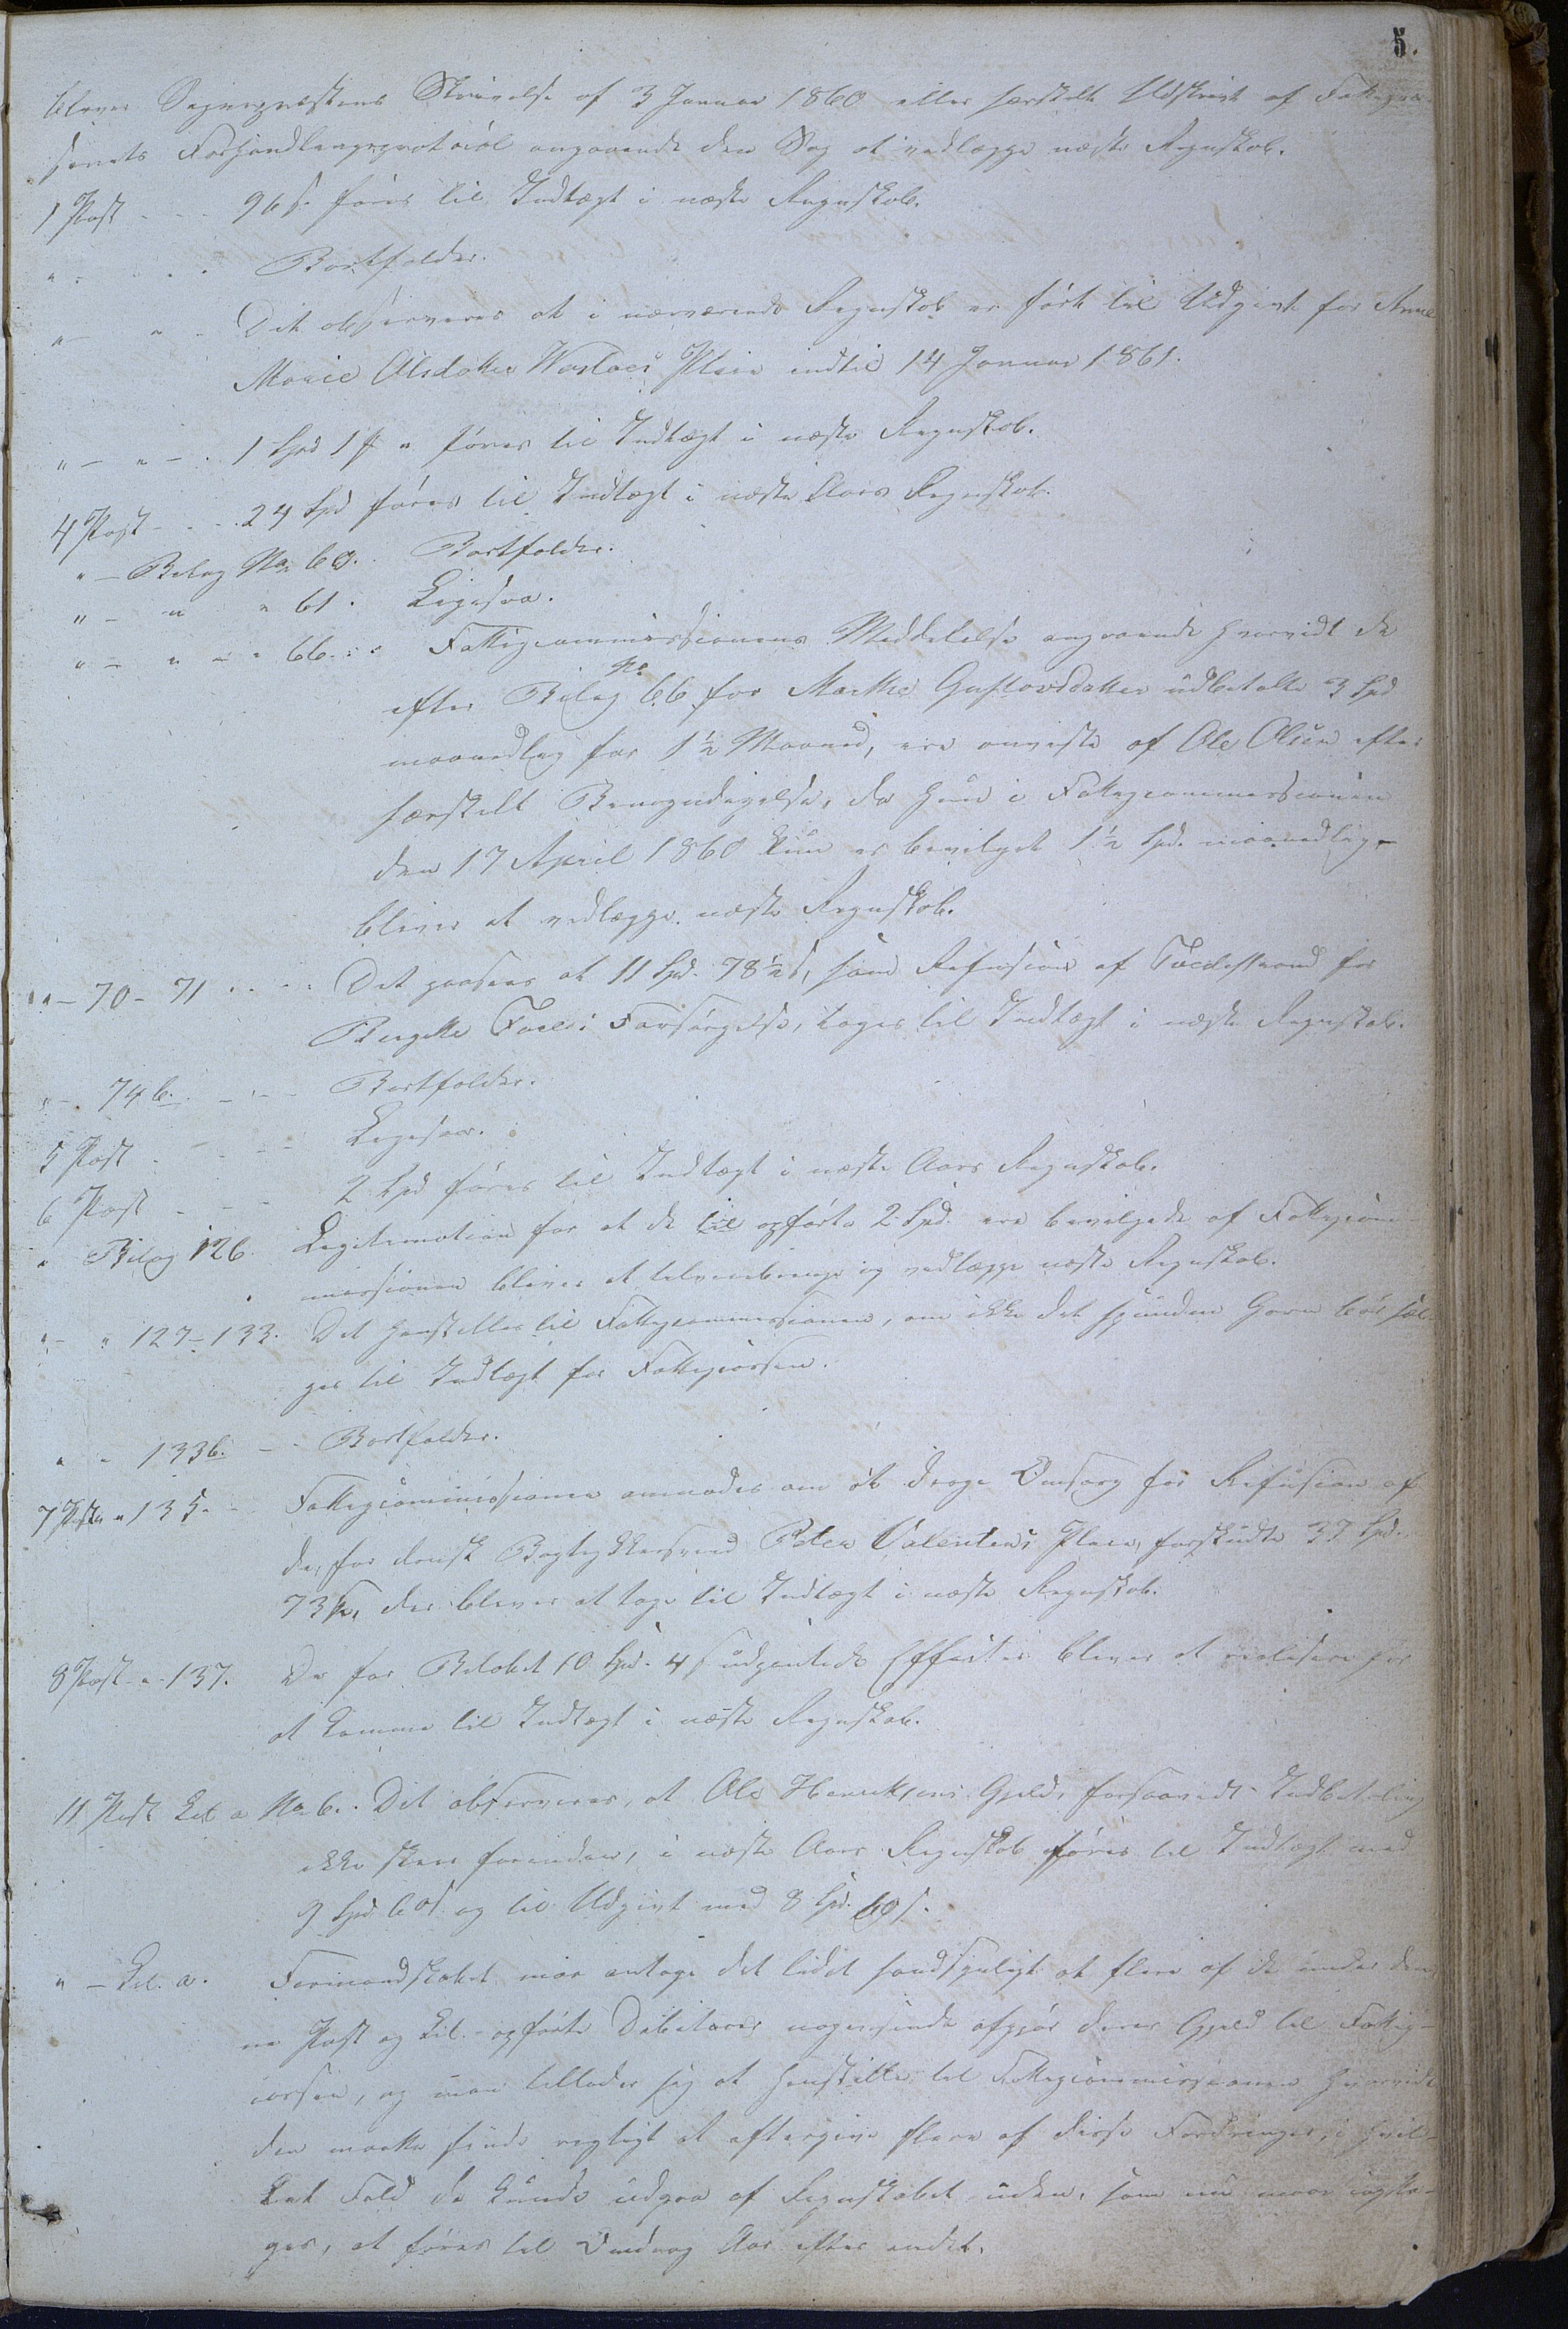 5.
bliver Sognepræstens Skrivelse af 3 Januar 1860 eller særskilt Udskrivt af Fattigvæ-
senets Forhandlingsprotocol angaaende den Sag at vedlægge næste Regnskab.
1 Post - - - 96 s. føres til Indtægt i næste Regnskab.
" - - - Bortfalder.
" - " - Det observeres at i nærværende Regnskab er ført til Udgivt for Anne
Marie Olsdatter Pleie indtil 14 Januar 1861.
" - " - . 1 Spd 1 ß " føres til Indtægt i næste Regnskab.
4 Post - - - 24 Spd føres til Indtægt i næste Aars Regnskab.
" - Bilag No 60. Bortfalder.
" - " " 61. Ligesaa.
" - " - " 66. . . Fattigcommissionens Meddelelse angaaende hvorvidt de
efter Bilag No 66 for Marthe Gustavsdatter udbetalte 3 Spd
maanedlig for 1½ Maaned, ere anviste af Ole Olsen efter
særskilt Bemyndigelse, da hun i Fattigcommissionen
den 17 April 1860 kun er bevilget 1½ Spd. maanedlig, -
bliver at vedlægge næste Regnskab.
" - 70 - 71 . . . . Det paasees at 11 Spd. 78½ s, som Refusion af Tvedestrand for
Birgitte Forsørgelse, tages til Indtægt i næste Regnskab.
" - 74 b. - - - Bortfalder.
5 Post - - - Ligesaa.
6 Post - - - 2 Spd føres til Indtægt i næste Aars Regnskab.
" Bilag 126. Legitimation for at de til opførte 2 Spd. ere bevilgede af Fattigcom-
missionen bliver at tilveiebringe og vedlægge næste Regnskab.
" - " 127 - 133. Det henstilles til Fattigcommissionen, om ikke det spundne Garn bør sæl-
ges til Indtægt for Fattigcassen.
" " 133 b. - - Bortfalder.
7 Post " 135. - Fattigcommissionen anmodes om at drage Omsorg for Refusion af
de, for dansk Bogtrykkersvend Peter Valentins Pleie, forskudte 37 Spd.
73 s, der bliver at tage til Indtægt i næste Regnskab.
8 Post - " 137. De for Beløbet 10 Spd. 4 s udpantede Effecter bliver at realisere for
at komme til Indtægt i næste Regnskab.
11 Post Lit. a No 6. . Det observeres, at Ole Henriksens Gjeld, forsaavidt Indbetaling
ikke skeer forinden, i næste Aars Regnskab føres til Indtægt med
9 Spd. 60 s og til Udgivt med 8 Spd. 60 s.
" - Lit. a. Formandskabet maa antage det lidet sandsynligt at flere af de under den-
ne Post og Lit. - opførte Debitorer nogensinde afgjør deres Gjeld til Fattig-
cassen, og man tillader sig at henstille til Fattigcommissionen hvorvidt
den maatte finde rigtigt at eftergive flere af disse Fordringer, i hvil-
ket Fald de kunde udgaa af Regnskabet uden, som nu maa iagtta-
ges, at føres til Omdrag Aar efter andet.